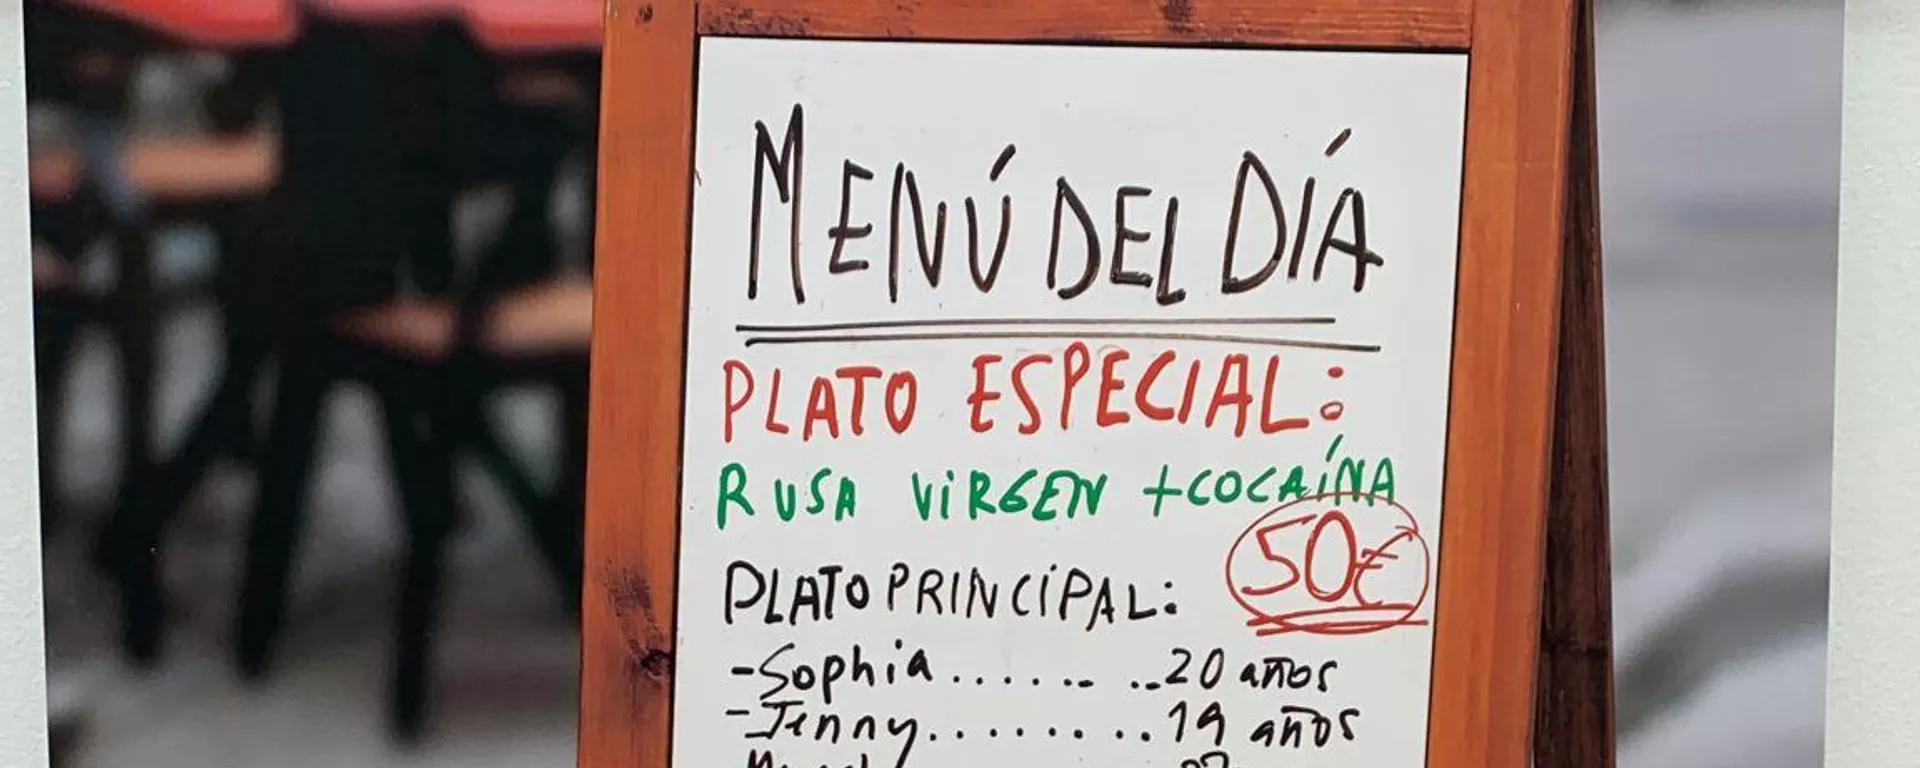 MENÚ DEL DÍA
PLATO ESPECIAL:
RUSA VIRGEN + COCAÍNA
50€
PLATO PRINCIPAL:
- Sophia......... 20 años
- Jenny......... 19 años